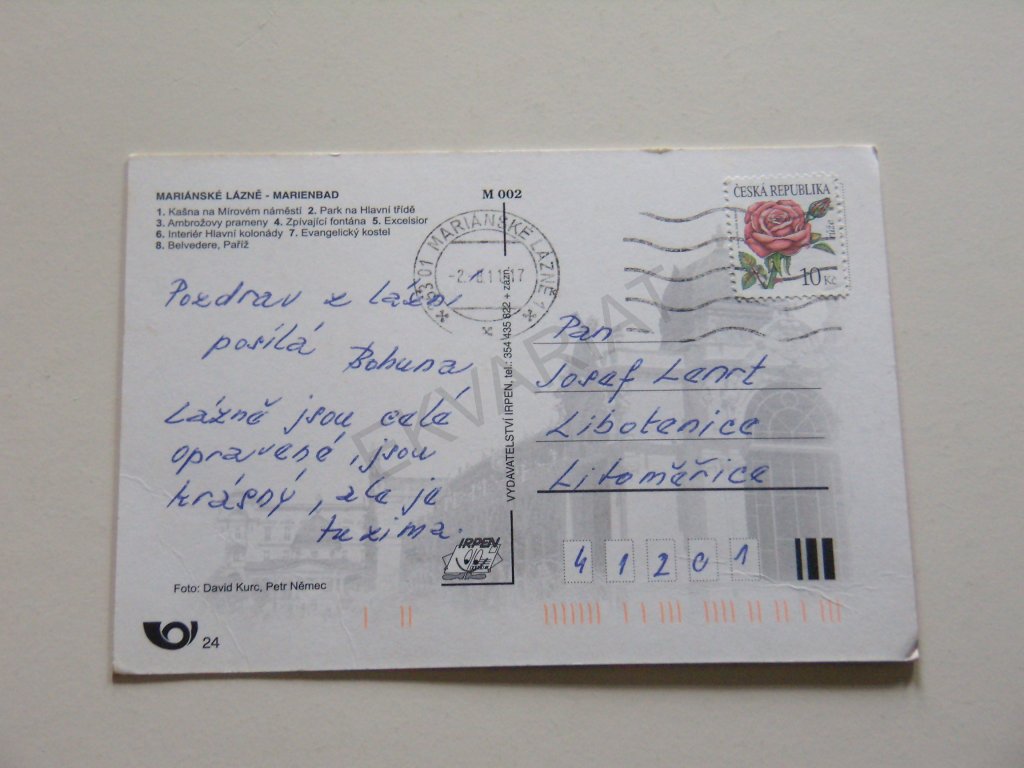 MARIÁNSKÉ LÁZNĚ - MARIENBAD
1. Kašna na Mírovém náměstí 2. Park na Hlavní třídě
3. Ambrožovy prameny 4. Zpívající fontána 5. Excelsior
6. Interiér Hlavní kolonády 7. Evangelický kostel
8. Belvedere, Paříž
M 002
353 01 MARIÁNSKÉ LÁZNĚ 1
ČESKÁ REPUBLIKA
růže
10 Kč
Pozdrav z lázní
posílá
Bohuna
Lázně jsou celé
opravené, jsou
krásný, ale je
tu zima.
VYDAVATELSTVÍ IRPEN, tel.: 354 435 822 + zázn.
Pan
Josef
Libotenice
Litoměřice
41201
IRPEN
Foto: David Kurc, Petr Němec
24
EKVARIAT